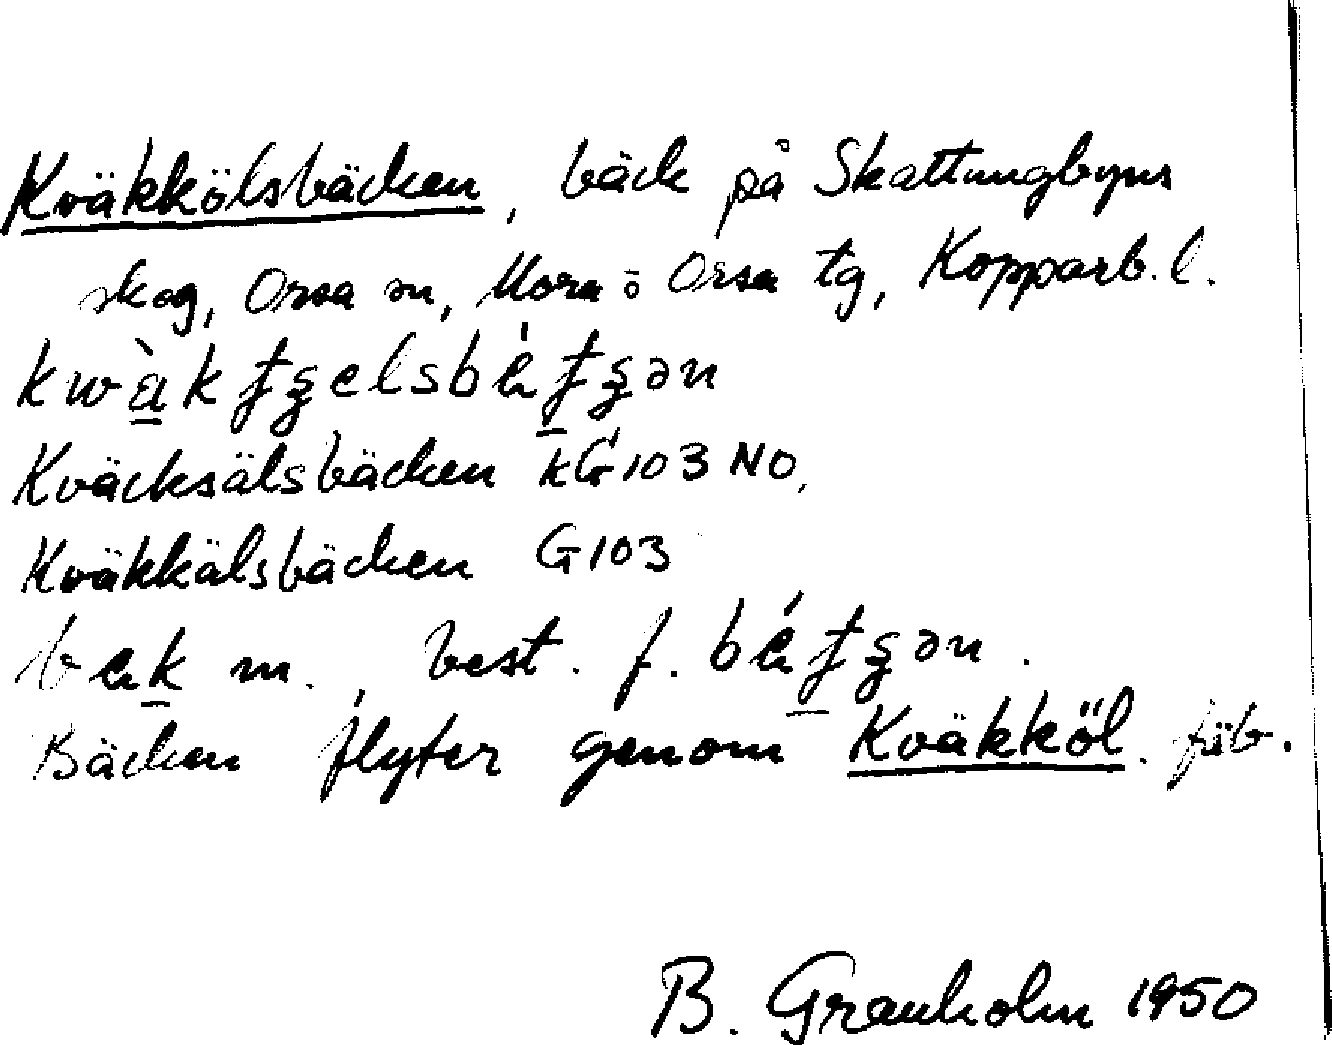 Kväkkölsbäcken, bäck på Skattungbyns
skog, Orsa sn, Mora o Orsa tg, Kopparb. l.
Kväcksälsbäcken kG103 NO,
Kväkkälsbäcken G103
m., best. f.
Bäcken flyter genom Kväkköl fäb.
B. Granholm 1950